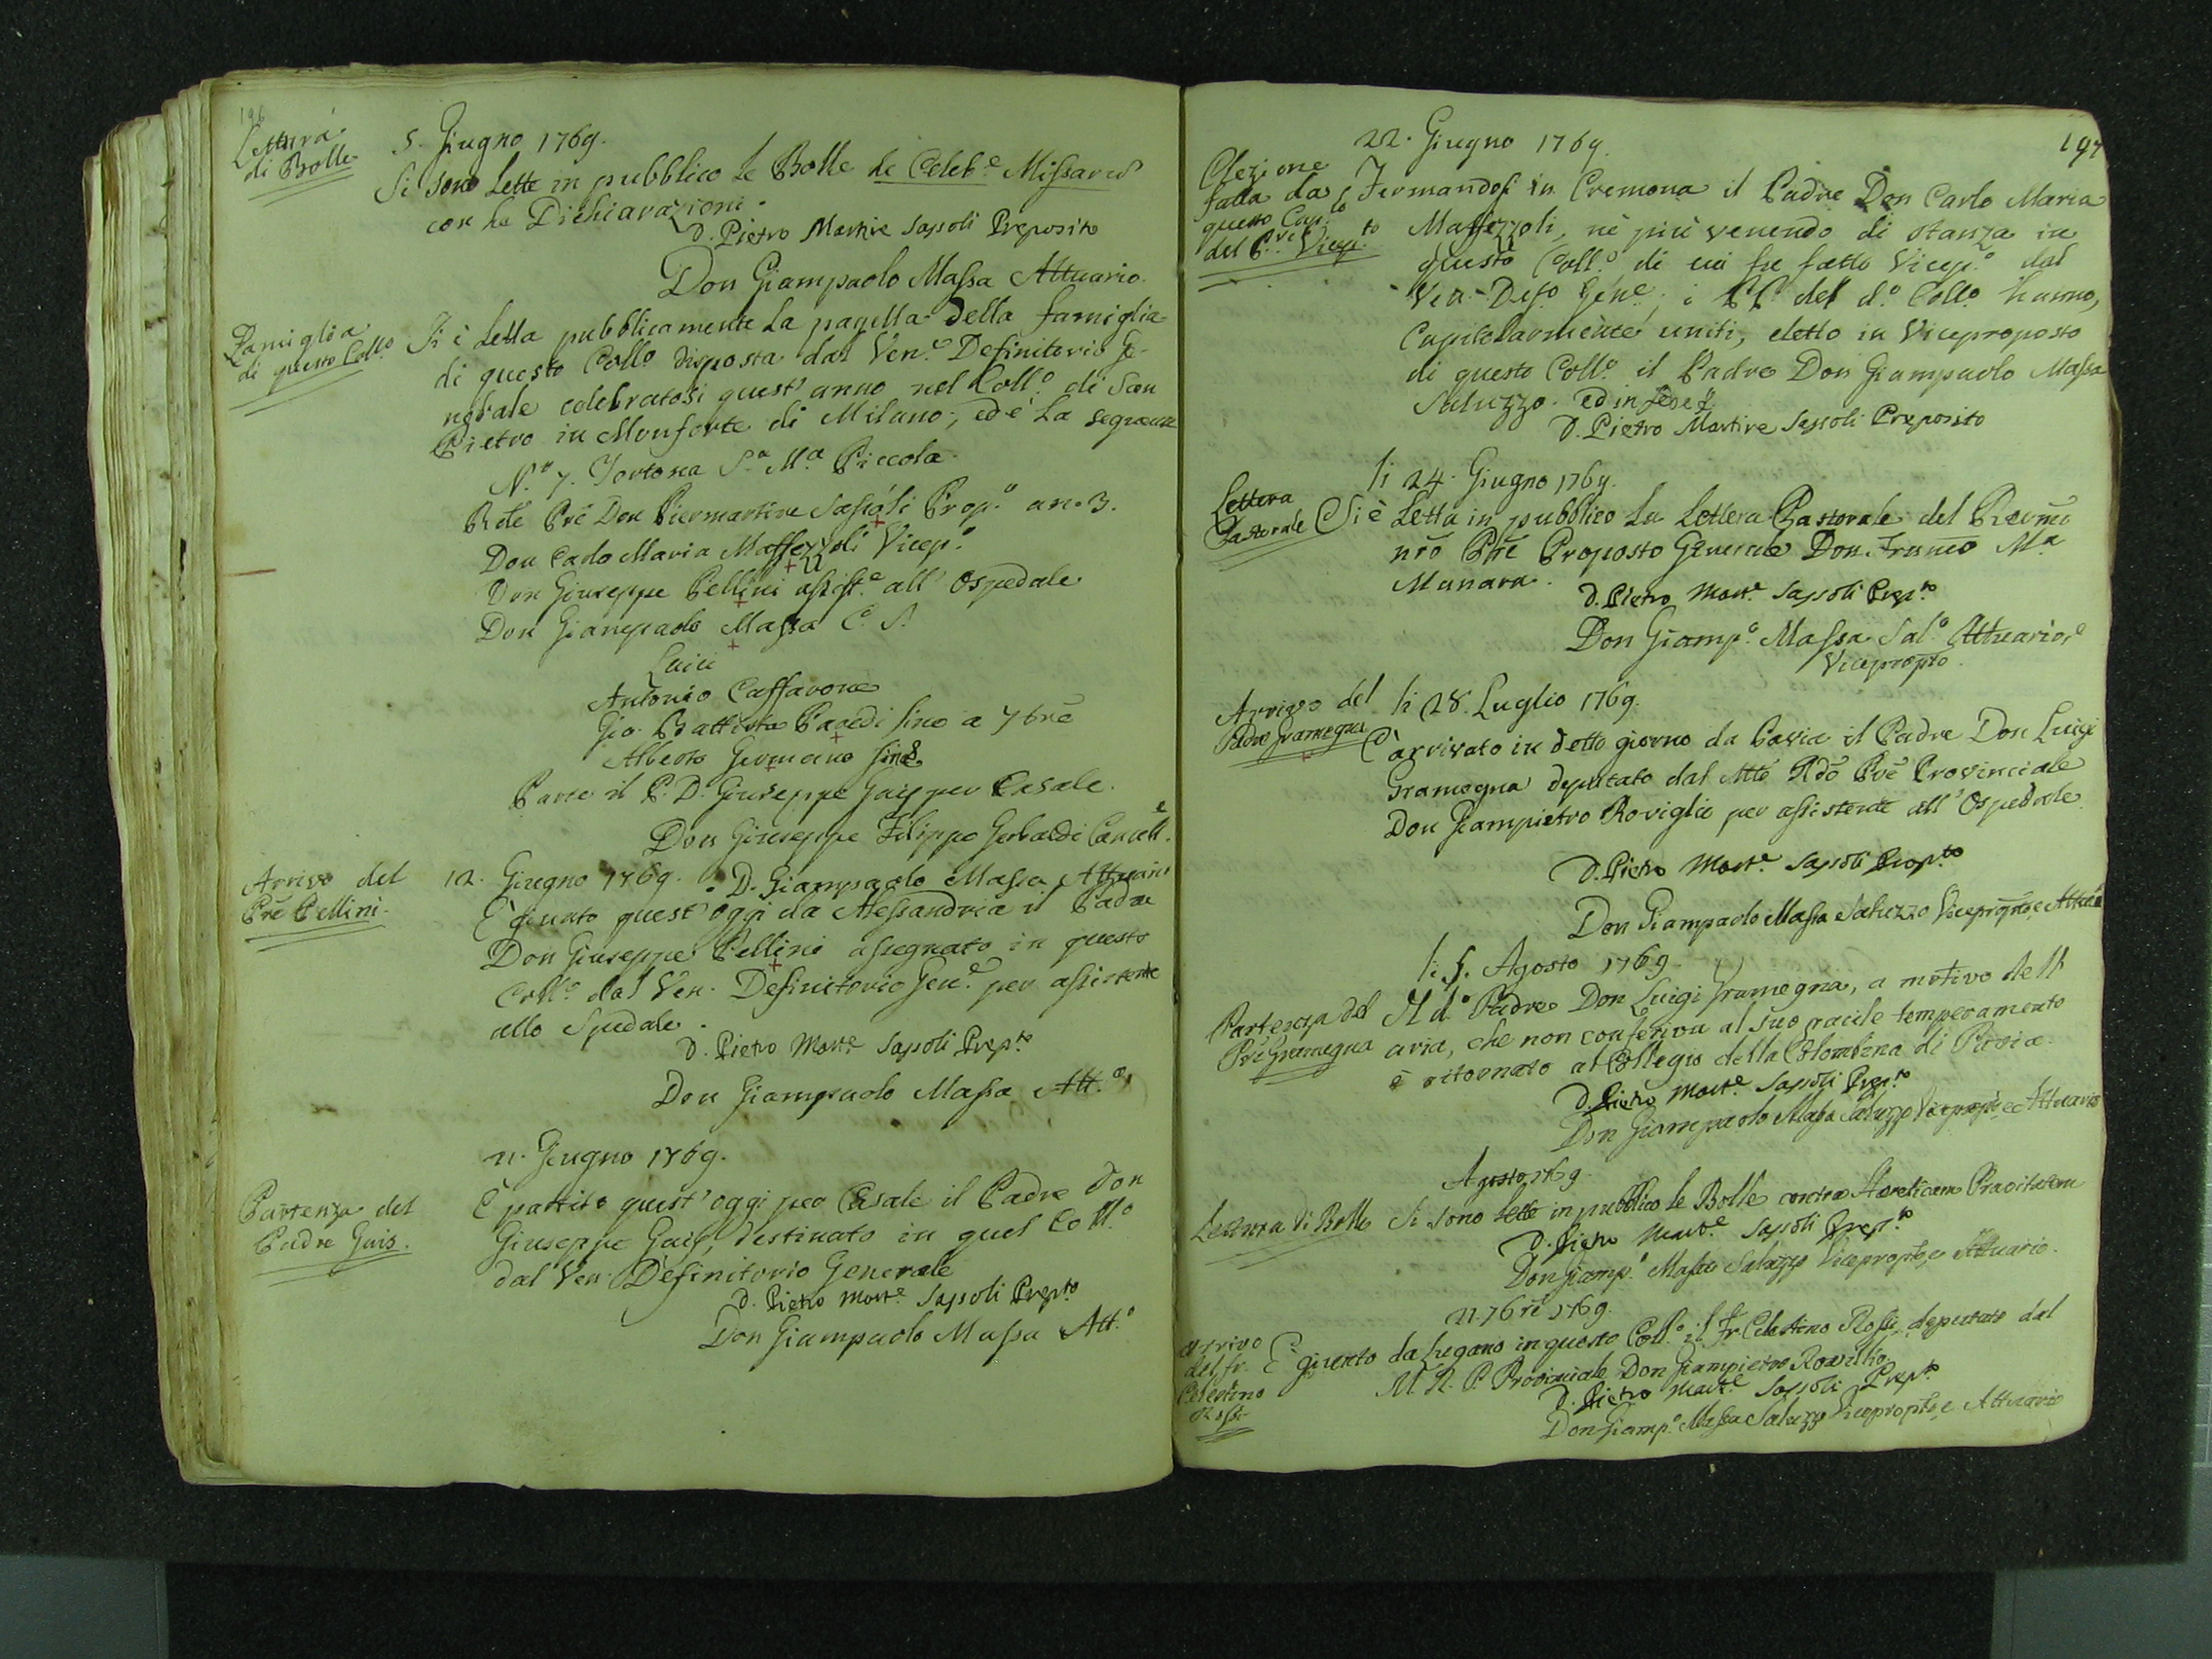 196
Lettura
di Bolle
5. Giugno 1769.
Si sono lette in pubblico le Bolle de Celeb.e Missarum
con le Dichiarazioni.
D. Pietro Martire Sassoli Preposito
Don Giampaolo Massa Attuario.
Famiglia
di questo Coll.o
Si è letta pubblicamente la pagella della famiglia
di questo Coll.o disposta dal Ven.e Definitorio Ge-
nerale celebratosi quest'anno nel Coll.o di San
Pietro in Monforte di Milano, ed è la seguente
N.o 7. Tortona S.a M.a Piccola.
R.do Prē Don Piermartire Sassoli Prop.o an. 3.
Don Carlo Maria Maffezzoli Vicep.o
Don Giuseppe Pellini assist.e all'Ospedale
Don Giampaolo Massa C. S.
Laici
Antonio Caffarone
Gio. Battista Paredi sino a 7brē
Alberto Germano sine
Parte il P. D. Giuseppe Gaif per Casale.
Don Giuseppe Filippo Gerbaldi Cancell.e
D. Giampaolo Massa Attuario
Arrivo del
Prē Pellini.
12. Giugno 1769.
È giunto quest'oggi da Alessandria il Padre
Don Giuseppe Pellini assegnato in questo
Coll.o dal Ven. Definitorio Gen.e per assistente
allo Spedale.
D. Pietro Mart.e Sassoli Prep.to
Don Giampaolo Massa Att.o
Partenza del
Padre Gais.
21. Giugno 1769.
È partito quest'oggi per Casale il Padre Don
Giuseppe Gaif, destinato in quel Coll.o
dal Ven. Definitorio Generale
D. Pietro Mart.e Sassoli Prep.to
Don Giampaolo Massa Att.o
197
22. Giugno 1769.
Elezione
fatta da
questo Cap.lo
del P.re Vicep.to
Fermandosi in Cremona il Padre Don Carlo Maria
Maffezzoli, nè più venendo di stanza in
questo Coll.o di cui fu fatto Vicep.o dal
Ven. Def.o Gen.e, i PP. del d.o Coll.o hanno,
Capitolarmente uniti, eletto in Viceproposto
di questo Coll.o il Padre Don Giampaolo Massa
Saluzzo. Ed in fede
D. Pietro Martire Sassoli Preposito
Lettera
Pastorale
li 24. Giugno 1769.
Si è letta in pubblico la lettera Pastorale del Revmo
nrō Prē Proposto Generale Don Franco M.a
Manara.
D. Pietro Mart.e Sassoli Prep.to
Don Giamp.o Massa Sal.o Attuario, e
Vicepropto.
Arrivo del
Padre Gramegna
li 28. Luglio 1769.
È arrivato in detto giorno da Pavia il Padre Don Luigi
Gramegna deputato dal Mto Rdō Prē Provinciale
Don Giampietro Roviglio per assistente all'Ospedale.
D. Pietro Mart.e Sassoli Prop.to
Don Giampaolo Massa Saluzzo Vicepropto, e Attu.o
Partenza del
Prē Gramegna
li 5. Agosto 1769.
Il d.o Padre Don Luigi Gramegna, a motivo dell'
aria, che non conferiva al suo gracile temperamento
è ritornato al Collegio della Colombina di Pavia.
D. Pietro Mart.e Sassoli Prep.to
Don Giampaolo Massa Saluzzo Vicepropto, e Attuario
Agosto 1769.
Lettura di Bolle
Si sono lette in pubblico le Bolle contra Haereticam Pravitatem
D. Pietro Mart.e Sassoli Prep.to
Don Giamp.o Massa Saluzzo Vicepropto, e Attuario.
Arrivo
del fr.
Celestino
Rossi
21. 76rē 1769.
È giunto da Lugano in questo Coll.o il Fr Celestino Rossi deputato dal
M. R. P. Provinciale Don Giampietro Roviglio
D. Pietro Mart.e Sassoli Prep.to
Don Giamp.o Massa Saluzzo Vicepropto, e Attuario